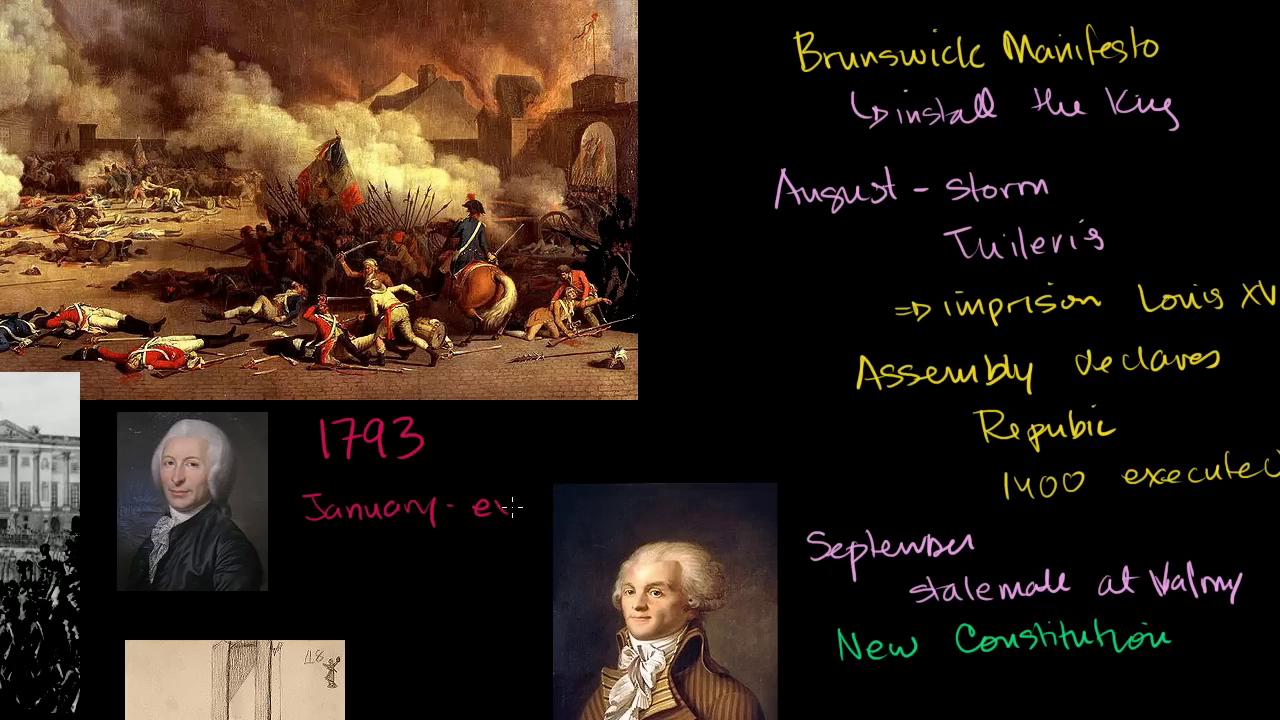 Brunswick Manifesto
install the King
August - storm
Tuileris
=> imprison Louis XV
Assembly declares
Repubic
1400 executed
1793
January - ex
September
stalemate at Valmy
New Constitution